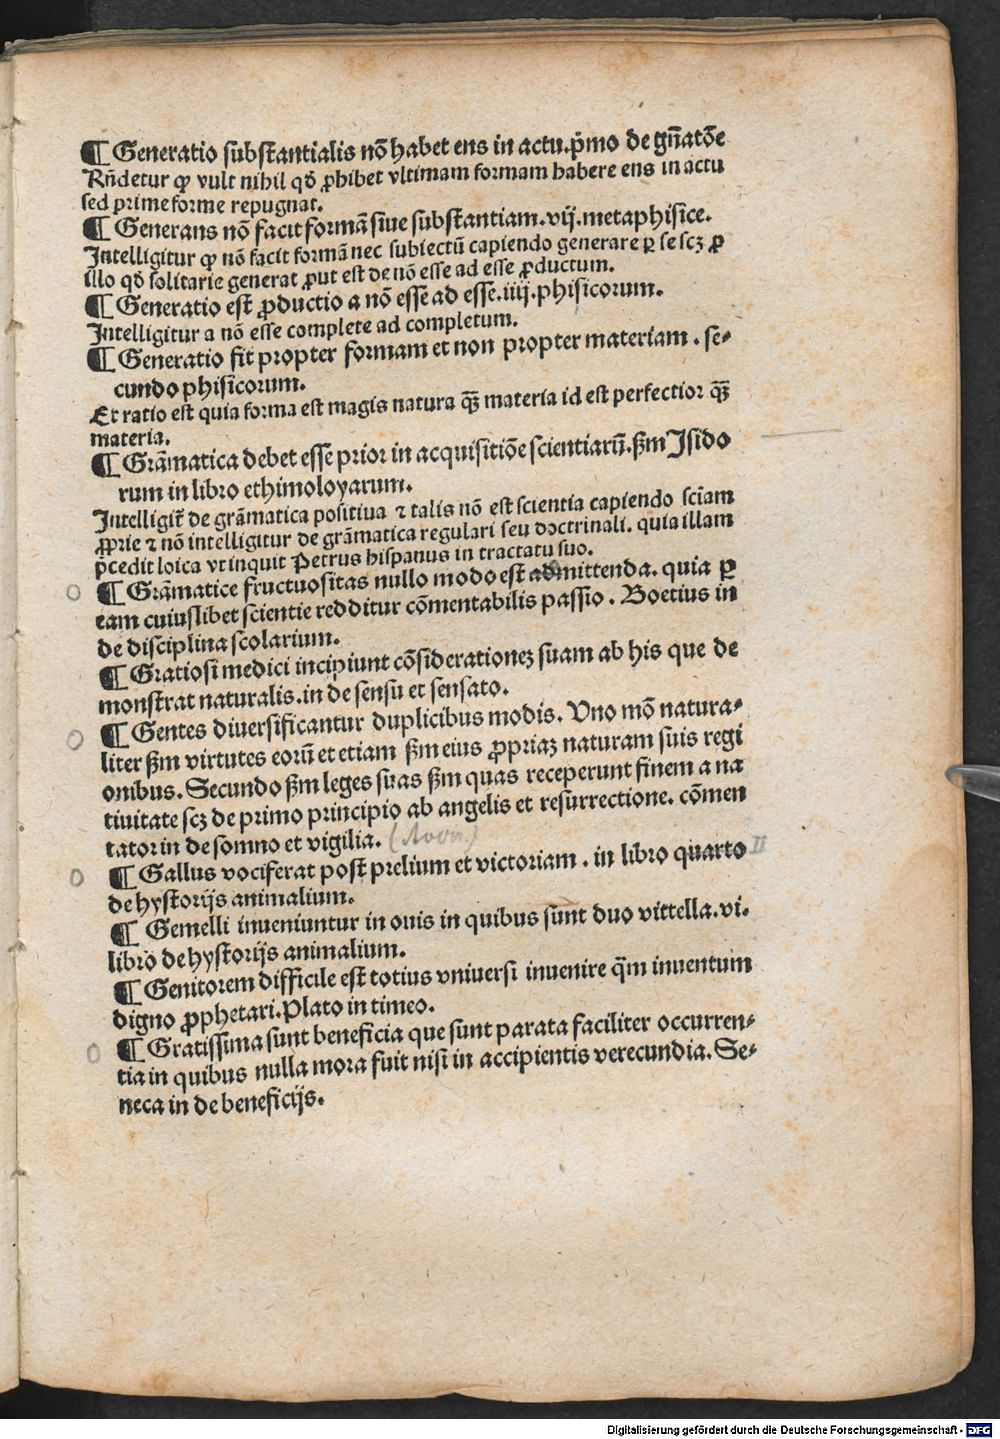 ¶ Generatio substantialis nō habet ens in actu. p̄mo de gn̄atōe
Rn̄detur ꝙ vult nihil qđ ꝓhibet vltimam formam habere ens in actu
sed prime forme repugnat.
¶ Generans nō facit formā siue substantiam. vij. metaphisice.
Intelligitur ꝙ nō facit formā nec subiectū capiendo generare ꝑ se scꝫ ꝓ
illo qđ solitarie generat ꝓut est de nō esse ad esse ꝓductum.
¶ Generatio est ꝓductio a nō esse ad esse. iiij. phisicorum.
Intelligitur a nō esse complete ad completum.
¶ Generatio fit propter formam et non propter materiam. se-
cundo phisicorum.
Et ratio est quia forma est magis natura qȝ̄ materia id est perfectior qȝ̄
materia.
¶ Grāmatica debet esse prior in acquisitiōe scientiarū. ßm Isido
rum in libro ethimoloyarum.
Intelligit̄ de grāmatica positiua ⁊ talis nō est scientia capiendo sciam̄
ꝓprie ⁊ nō intelligitur de grāmatica regulari seu doctrinali. quia illam
p̄cedit loica vt inquit Petrus hispanus in tractatu suo.
¶ Grāmatice fructuositas nullo modo est admittenda. quia ꝑ
eam cuiuslibet scientie redditur cōmentabilis passio. Boetius in
de disciplina scolarium.
¶ Gratiosi medici incipiunt cōsiderationeȝ suam ab his que de
monstrat naturalis. in de sensu et sensato.
¶ Gentes diuersificantur duplicibus modis. Uno mō natura-
liter ßm virtutes eorū et etiam ßm eius ꝓpriaȝ naturam suis regi
onibus. Secundo ßm leges suas ßm quas receperunt finem a na
tiuitate scȝ de primo principio ab angelis et resurrectione. cōmen
tator in de somno et vigilia.
¶ Gallus vociferat post prelium et victoriam. in libro quarto II
de hystorijs animalium.
¶ Gemelli inueniuntur in ouis in quibus sunt duo vittella. vi.
libro de hystorijs animalium.
¶ Genitorem difficile est totius vniuersi inuenire qm̄ inuentum
digno ꝓphetari. Plato in timeo.
¶ Gratissima sunt beneficia que sunt parata faciliter occurren-
tia in quibus nulla mora fuit nisi in accipientis verecundia. Se-
neca in de beneficijs.
Digitalisierung gefördert durch die Deutsche Forschungsgemeinschaft - DFG